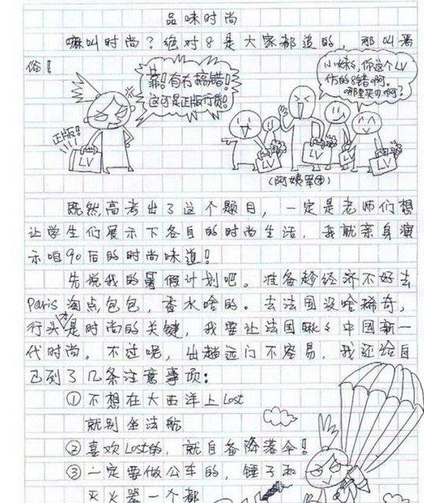 品味时尚
嘛叫时尚？绝对8是大家都追的，那叫暑
俗！
靠！有冇搞错！
这可是正版行货！
小妹，你这个LV
仿的8错啊，
哪里买的啊？
正版！
LV
LV
LV
LV
（阿姨军团）
既然高考出了这个题目，一定是老师们想
让学生们展示下各自的时尚生活，我就亲身演
示咱90后的时尚味道！
先说我的暑假计划吧。准备趁经济不好去
Paris淘点包包，香水啥的。去法国没啥稀奇，
行头才是时尚的关键，我要让法国瞅瞅中国新一
代时尚。不过呢，出趟远门不容易，我还给自
己列了几条注意事项：
①不想在大西洋上Lost
就别坐法航
②喜欢Lost的，就自备降落伞！
③一定要做公车的，锤子和
灭火器一个都